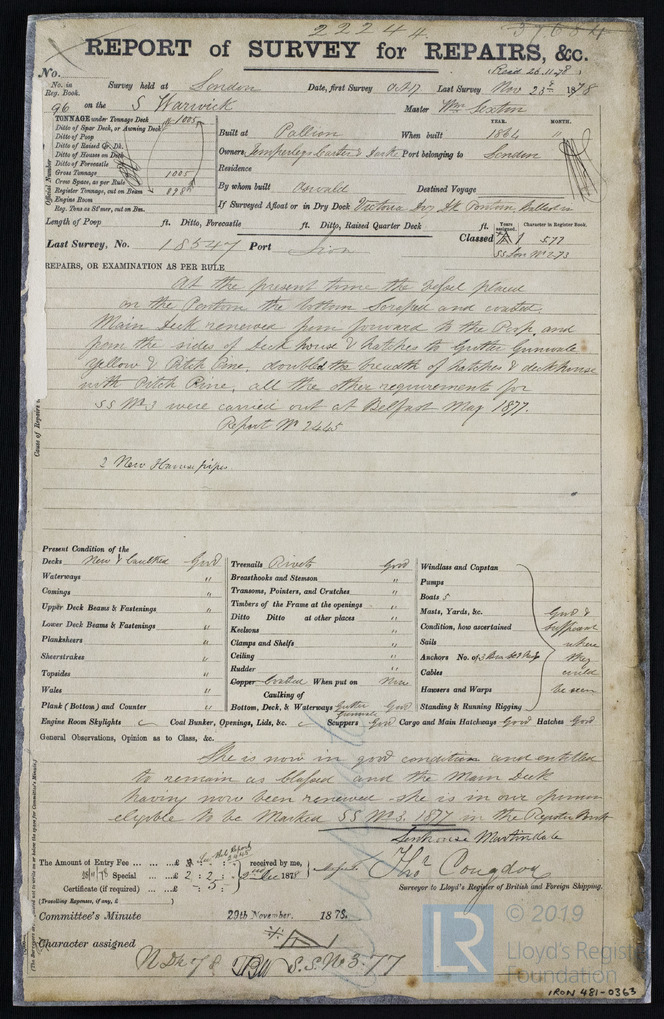 22244
REPORT of SURVEY for REPAIRS, &c.
No.
(Recd 26.11.78)
No. in Reg. Book. Survey held at London Date, first Survey Last Survey Nov 23 1878
96 on the S Warwick Master Wm Sexton
TONNAGE under Tonnage Deck 1005
Ditto of Spar Deck, or Awning Deck
Ditto of Poop
Ditto of Raised Qr. Dk.
Ditto of Houses on Deck
Ditto of Forecastle
Gross Tonnage 1005
Crew Space, as per Rule
Register Tonnage, cut on Beam 898
Engine Room
Reg. Tons as St'mer, cut on Bm.
Official Number
YEAR. MONTH.
Built at Pallion When built 1864
Owners, Temperleys Carter & Port belonging to London
Residence
By whom built Oswald Destined Voyage
If Surveyed Afloat or in Dry Dock Victoria Dry Dk Pontoon,
Length of Poop ft. Ditto, Forecastle ft. Ditto, Raised Quarter Deck ft.
Years assigned. Character in Register Book.
Last Survey, No. 18547 Port Classed A 1 5,77
SS Lon No 2.73
REPAIRS, OR EXAMINATION AS PER RULE
At the present time the Vessel placed
on the Pontoon the bottom Scraped and coated,
Main Deck renewed from forward to the Poop, and
from the sides of deck house & hatches to Gutter Gunwale
Yellow & Pitch Pine, doubled the breadth of hatches & deckhouse
with Pitch Pine, all the other requirement for
SS No 3 were carried out at Belfast May 1877.
Report No 2445
2 New Hawse pipes
Cause of Repairs
Present Condition of the
Decks New & Caulked Good
Waterways "
Comings "
Upper Deck Beams & Fastenings "
Lower Deck Beams & Fastenings "
Planksheers "
Sheerstrakes "
Topsides "
Wales "
Plank (Bottom) and Counter "
Treenails Rivets Good
Breasthooks and Stemson "
Transoms, Pointers, and Crutches "
Timbers of the Frame at the openings "
Ditto Ditto at other places "
Keelsons "
Clamps and Shelfs "
Ceiling "
Rudder "
Copper Coated When put on Now
Caulking of
Bottom, Deck, & Waterways Gutter Gunwale Good
Windlass and Capstan
Pumps
Boats 5
Masts, Yards, &c.
Condition, how ascertained
Sails
Anchors No. of
Cables
Hawsers and Warps
Standing & Running Rigging
Good &
sufficient
where
they
could
be seen
Engine Room Skylights Coal Bunker, Openings, Lids, &c. Scuppers Good Cargo and Main Hatchways Good Hatches Good
General Observations, Opinion as to Class, &c.
She is now in good condition and entitled
to remain as Classed and the Main Deck
having now been renewed she is in our opinion
eligible to be Marked SS No 3. 1877 in the Register Book
Senhouse Martindale
The Amount of Entry Fee ... £
28/11/78 Special ... £ 2 : 2 : received by me, Dec 1878
Certificate (if required) ... £ : 5 :
(Travelling Expenses, if any, £ )
Thos Congdon
Surveyor to Lloyd's Register of British and Foreign Shipping.
Committee's Minute 29th November. 1878.
Character assigned
N Dk 78 S.S. No 3-77
© 2019
LR
Lloyd's Register
Foundation
IRON 481-0363